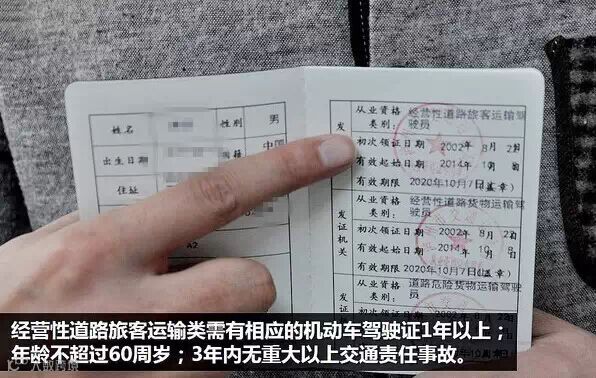 姓名 性别 男
出生日期 国籍 中国
住址
A2
从业资格类别: 经营性道路旅客运输驾驶员
初次领证日期 2002年8月2日
有效起始日期 2014年10月
有效期限 2020年10月7日(盖章)
发证机关
从业资格类别: 经营性道路货物运输驾驶员
初次领证日期 2002年8月2日
有效起始日期 2014年10月8
有效期限 2020年10月7日(盖章)
从业资格类别: 道路危险货物运输驾驶员
经营性道路旅客运输类需有相应的机动车驾驶证1年以上；
年龄不超过60周岁；3年内无重大以上交通责任事故。
大叔跨境